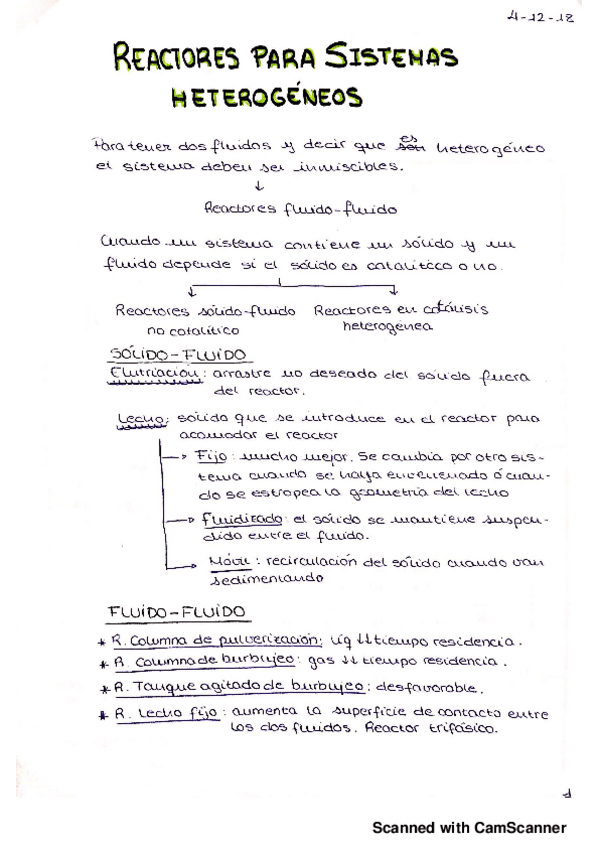 4-12-18
REACTORES PARA SISTEMAS
HETEROGÉNEOS
Para tener dos fluidos y decir que es son heterogéneo
el sistema deben ser inmiscibles.
↓
Reactores fluido-fluido
Cuando un sistema contiene un sólido y un
fluido depende si el sólido es catalítico o no.
Reactores sólido-fluido Reactores en catálisis
no catalítico heterogénea
SÓLIDO-FLUIDO
Elutriación: arrastre no deseado del sólido fuera
del reactor.
Lecho: sólido que se introduce en el reactor para
acomodar el reactor
→ Fijo: mucho mejor. Se cambia por otro sis-
tema cuando se halla envenenado ó cuan-
do se estropea la geometría del lecho
→ Fluidizado: el sólido se mantiene suspen-
dido entre el fluido.
→ Móvil: recirculación del sólido cuando van
sedimentando
FLUIDO-FLUIDO
* R. Columna de pulverización: líq ↓↓ tiempo residencia.
* R. Columna de burbujeo: gas ↓↓ tiempo residencia.
* R. Tanque agitado de burbujeo: desfavorable.
* R. Lecho fijo: aumenta la superficie de contacto entre
los dos fluidos. Reactor trifásico.
1
Scanned with CamScanner